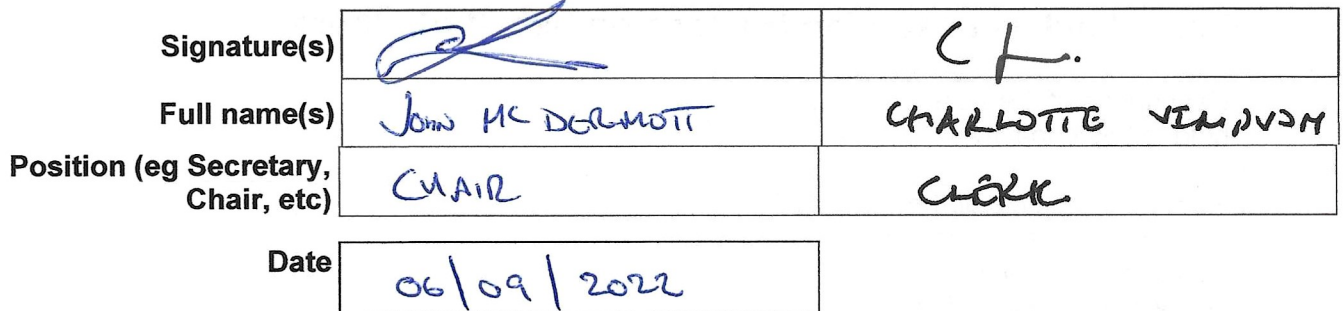 Signature(s)
Full name(s) JOHN MCDERMOTT CHARLOTTE
Position (eg Secretary,
Chair, etc) CHAIR CLERK
Date 06/09/2022